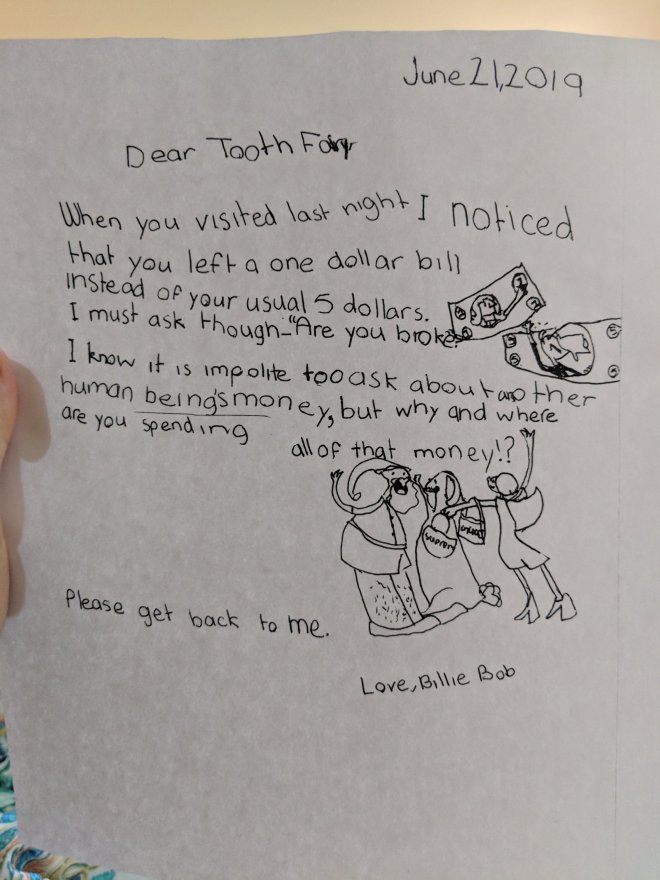 June 21, 2019
Dear Tooth Fairy
When you visited last night I noticed
that you left a one dollar bill
instead of your usual 5 dollars.
I must ask though-"Are you broke?"
I know it is impolite too ask about another
human being's money, but why and where
are you spending
all of that money!?
Supreme
Please get back to me.
Love, Billie Bob